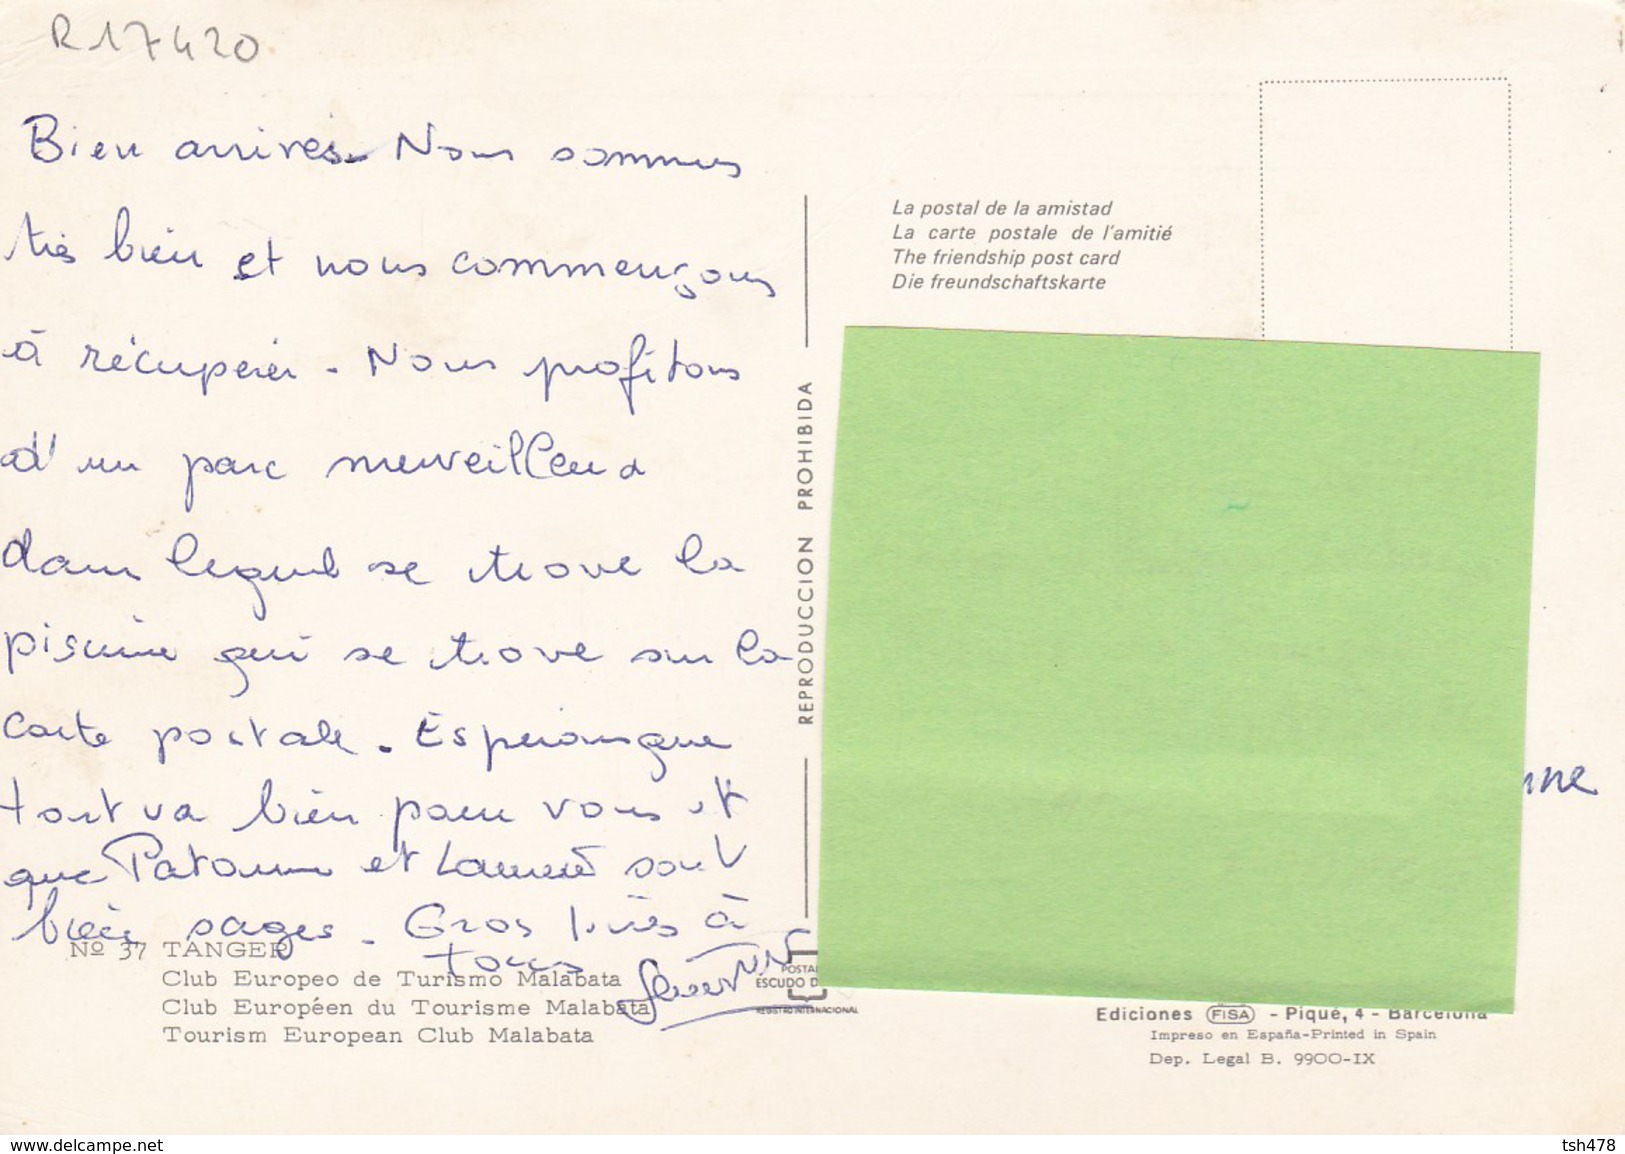 R17420
Bien arrivés. Nous sommes
très bien et nous commençons
à récupérer. Nous profitons
d'un parc merveilleux
dans lequel se trove la
piscine qui se trove sur la
carte postale. Espérons que
tout va bien pour vous et
que et sont
bien sages. Gros bises à
tous
Nº 37 TANGER
Club Europeo de Turismo Malabata
Club Européen du Tourisme Malabata
Tourism European Club Malabata
REPRODUCCION PROHIBIDA
La postal de la amistad
La carte postale de l'amitié
The friendship post card
Die freundschaftskarte
nne
POSTA
ESCUDO D
REGISTRO INTERNACIONAL
Ediciones FISA - Piqué, 4 - Barcelona
Impreso en España-Printed in Spain
Dep. Legal B. 9900-IX
www.delcampe.net
tsh478